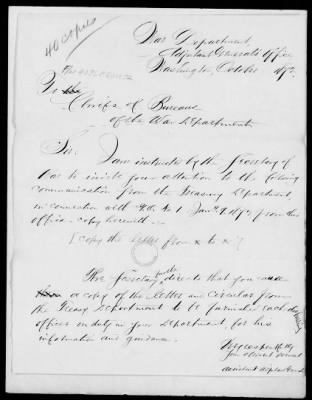 40 copies
War Department,
Adjutant General's Office
Washington, October 187
To the
Chiefs of Bureaus
of the War Department
Sir: I am instructed by the Secretary of
War to invite your attention to the following
communication from the Treasury Department,
in connection with No. 1 Jan. 9, 187 from this
office - copy herewith -
[copy the letter from x to x]
The Secretary further directs that you cause
a copy of the letter and circular from
the Treasy Department to be furnished each
officer on duty in your Department, for his
information and guidance.
Very respectfully
Your obedient servant
Assistant Adjutant General